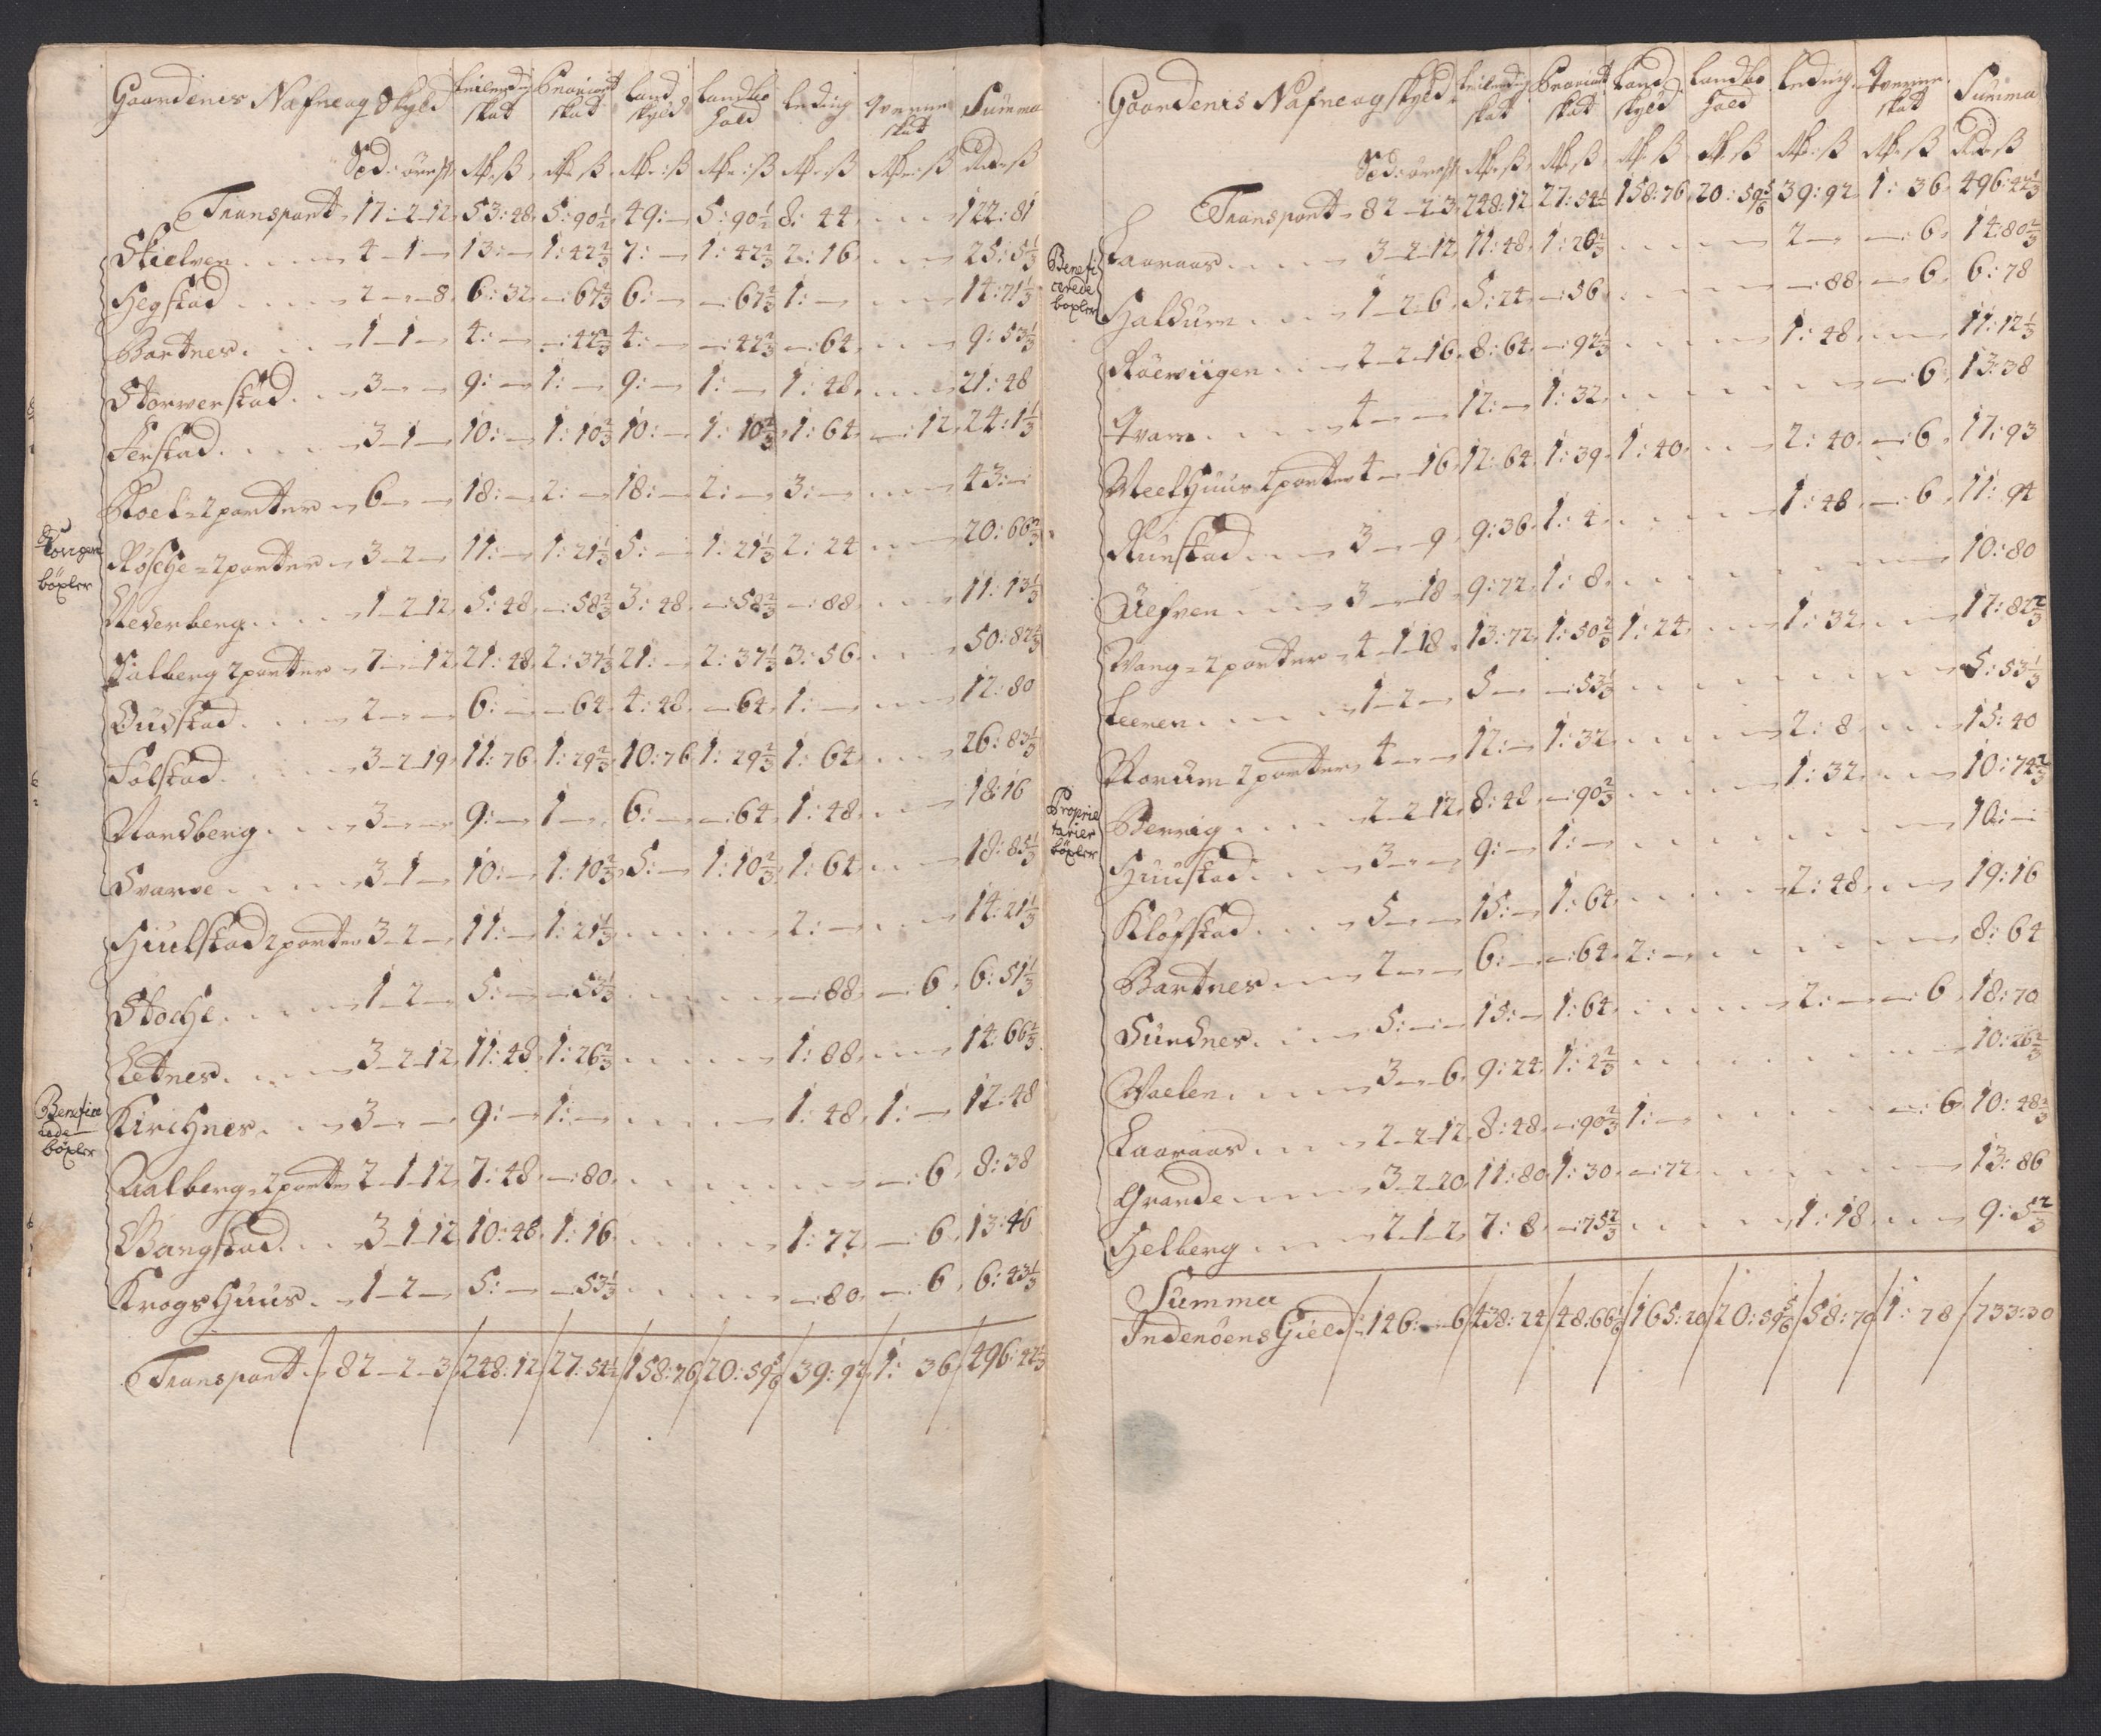 Gaardenes Nafne og Skyld | Leilending skat | Proviant skat | Land skyld | Landbo hold | Leding | Qverne skat | Summa
Spd: öre | ß | ß | ß | ß | ß | ß | ß
Transport 17-2-12 53:48 5:90½ 49:— 5:90½ 8:44 122:81
Skielven 4-1- 13:— 1:42⅔ 7:— 1:42⅔ 2:16 25:5⅓
Hegstad 2-—8 6:32 —:67⅔ 6:— —:67⅔ 1:— 14:71⅓
Bartnes 1-1- 4:— —:42⅔ 4:— —:42⅔ —:64 9:53⅓
Storverstad 3-— 9:— 1:— 9:— 1:— 1:48 21:48
Ferstad 3-1- 10:— 1:10⅔ 10:— 1:10⅔ 1:64 —:12 24:1⅓
Roel 2 parter 6-— 18:— 2:— 18:— 2:— 3:— 43:—
Kongen böxler
Röske 2 parter 3-2- 11:— 1:21⅓ 5:— 1:21⅓ 2:24 20:66⅔
Nederberg 1-2-12 5:48 —:58⅔ 3:48 —:58⅔ —:88 11:13⅓
Salberg 2 parter 7-—12 21:48 2:37⅓ 21:— 2:37⅓ 3:56 50:82⅔
Dudstad 2-— 6:— —:64 4:48 —:64 1:— 12:80
Folstad 3-2-19 11:76 1:29⅔ 10:76 1:29⅔ 1:64 26:83⅓
Nordberg 3-— 9:— 1— 6:— —:64 1:48 18:16
Svarve 3-1- 10:— 1:10⅔ 5:— 1:10⅔ 1:64 18:85⅓
Hiulstad 2 parter 3-2- 11:— 1:21⅓ 2:— 14:21⅓
Stoche 1-2- 5:— —:53⅓ —:88 —:6 6:51⅓
Letnes 3-2-12 11:48 1:26⅔ 1:88 14:66⅔
Beneficerede böxler
Kirchnes 3-— 9:— 1:— 1:48 1:— 12:48
Aalberg 2 parter 2-1-12 7:48 —:80 —:6 8:38
Vangstad 3-1-12 10:48 1:16 1:72 —:6 13:46
Krogs Huus 1-2- 5:— —:53⅓ —:80 —:6 6:43⅓
Transport 82-2-3 248:12 27:54½ 158:76 20:59⅚ 39:92 1:36 496:42⅓
Gaardenis Nafne og skyld | Leilending skat | Proviant skat | Land skyld | Landbo hold | Leding | Qverne skat | Summa
Spd: öre | ß | ß | ß | ß | ß | ß | ß
Transport 82-2-3 248:12 27:54½ 158:76 20:59⅚ 39:92 1:36 496:42⅓
Beneficerede boxler
Laaraas 3-2-12 11:48 1:26⅔ 2— —:6 14:80⅔
Haldum 1-2-6 5:24 —:56 —:88 —:6 6:78
Röeviigen 2-2-16 8:64 —:92⅓ 1:48 11:12⅓
Qvam 4-— 12:— 1:32 —:6 13:38
Meel Huus 2 parter 4-—16 12:64 1:39 1:40 2:40 —:6 17:93
Runstad 3-—9 9:36 1:4 1:48 —:6 11:94
Uefven 3-—18 9:72 1:8 10:80
Vang 2 parter 4-1-18 13:72 1:50⅔ 1:24 1:32 17:82⅔
Leeren 1-2- 5— —:53⅓ 5:53⅓
Norum 2 parter 4-— 12:— 1:32 2:8 15:40
Proprietarier böxler
Berrig 2-2-12 8:48 —:90⅔ 1:32 10:74⅔
Huustad 3-— 9:— 1:— 10:—
Klöfstad 5-— 15:— 1:64 2:48 19:16
Bartnes 2-— 6:— —:64 2:— 8:64
Sundnes 5:— 15:— 1:64 2:— —:6 18:70
Vaelen 3-—6 9:24 1:2⅔ 10:26⅔
Laaraas 2-2-12 8:48 —:90⅔ 1:— —:6 10:48⅔
Grande 3-2-20 11:80 1:30 —:72 13:86
Helberg 2-1-2 7:8 —:75⅔ 1:18 9:5⅔
Summa
Inderöens Gield 146:—6 438:24 48:66⅙ 165:20 20:59⅚ 58:70 1:78 733:30